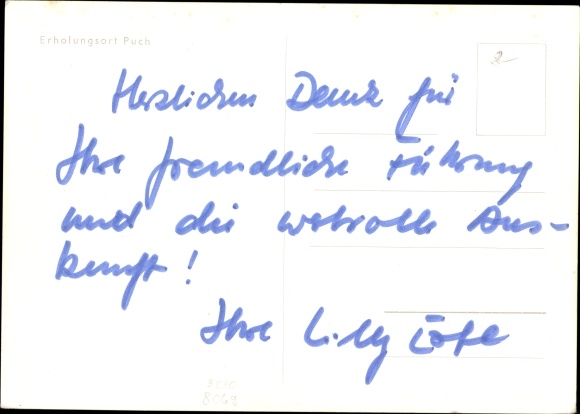 Erholungsort Puch
2-
Herzlichen Dank für
Ihre freundliche Führung
und die wertvolle Aus-
kunft!
Ihre Lilly
8062